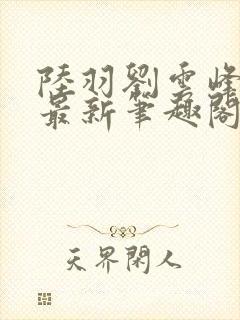 陸羽劉雲峰
最新筆趣閣
天界閑人